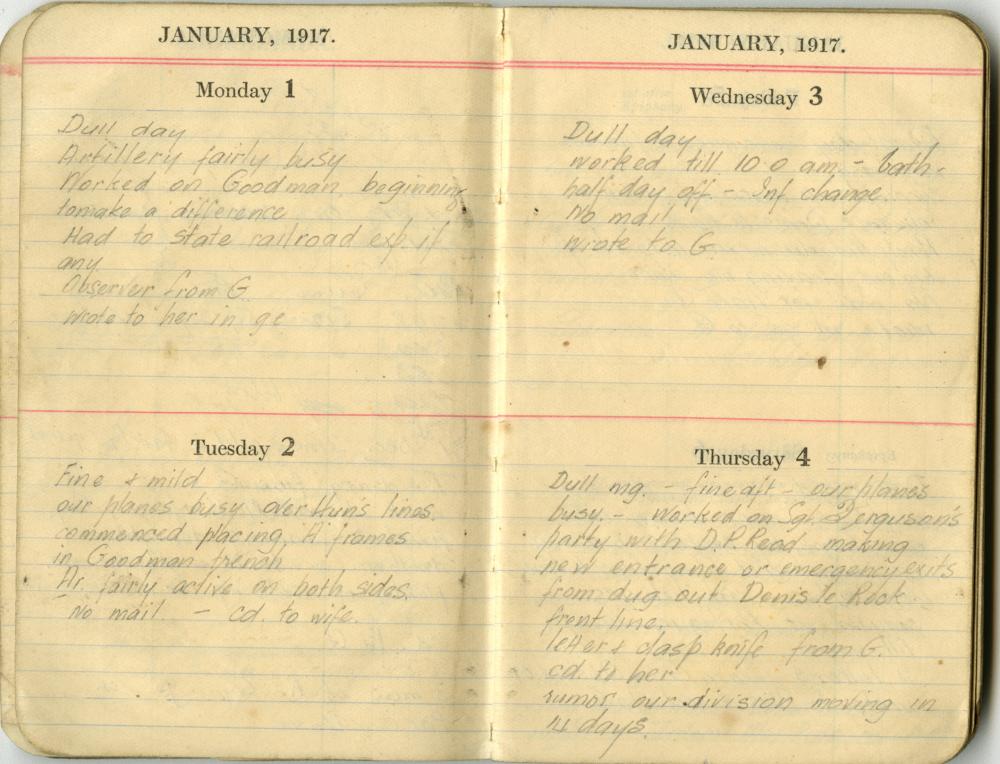 JANUARY, 1917.
Monday 1
Dull day
Artillery fairly busy
Worked on Goodman beginning
to make a difference
Had to state railroad exp. if
any.
Observer from G.
wrote to her in ge
Tuesday 2
Fine & mild
our planes busy over Hun's lines.
commenced placing A frames
in Goodman trench
Ar. fairly active on both sides.
No mail. – cd. to wife.
JANUARY, 1917.
Wednesday 3
Dull day
worked till 10 0 am. – bath –
half day off – Inf change.
No mail
wrote to G.
Thursday 4
Dull mg. – fine aft – our planes
busy. – worked on Sgt. Ferguson's
party with D.P. Read making
new entrance or emergency exits
from dug out Denis le Rock
front line.
letter & clasp knife from G.
cd. to her
rumor our division moving in
days.